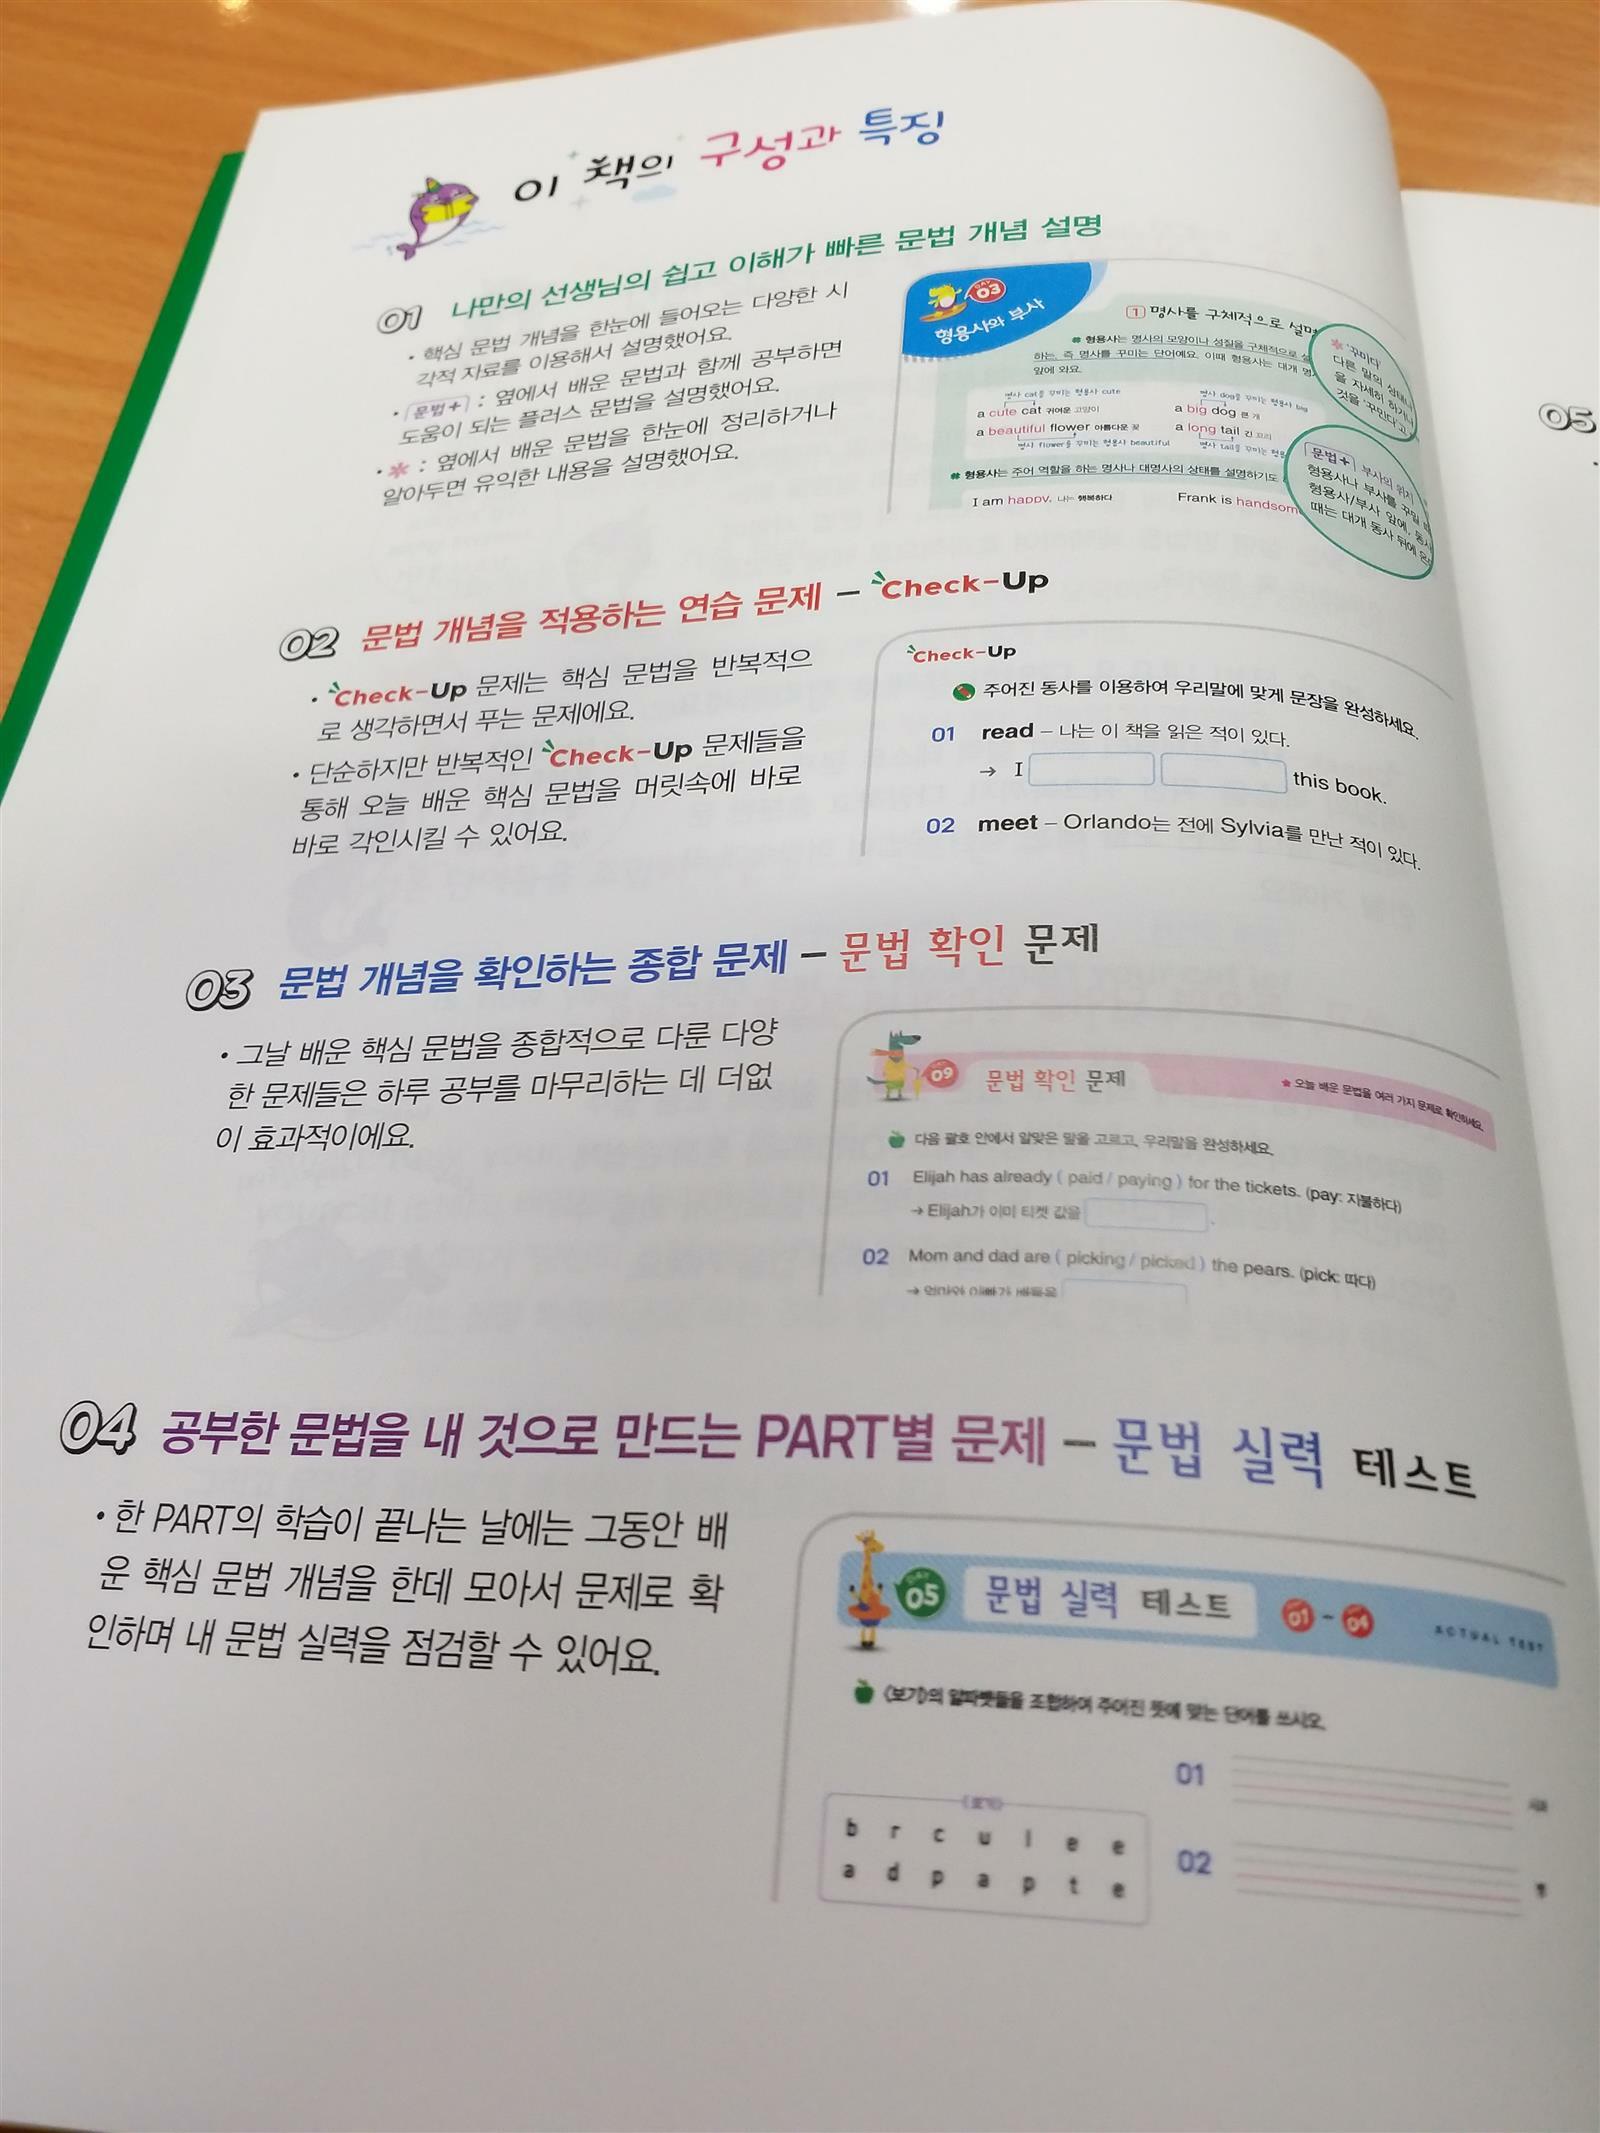 이 책의 구성과 특징
01 나만의 선생님의 쉽고 이해가 빠른 문법 개념 설명
• 핵심 문법 개념을 한눈에 들어오는 다양한 시
각적 자료를 이용해서 설명했어요.
• 문법+ : 옆에서 배운 문법과 함께 공부하면
도움이 되는 플러스 문법을 설명했어요.
• * : 옆에서 배운 문법을 한눈에 정리하거나
알아두면 유익한 내용을 설명했어요.
DAY 03
형용사와 부사
1 명사를 구체적으로 설명
# 형용사는 명사의 모양이나 성질을 구체적으로 설
하는, 즉 명사를 꾸미는 단어예요. 이때 형용사는 대개 명
앞에 와요.
명사 cat을 꾸미는 형용사 cute
명사 dog을 꾸미는 형용사 big
a cute cat 귀여운 고양이
a big dog 큰 개
a beautiful flower 아름다운 꽃
a long tail 긴 꼬리
명사 flower을 꾸미는 형용사 beautiful
명사 tail을 꾸미는 형용
# 형용사는 주어 역할을 하는 명사나 대명사의 상태를 설명하기도
I am happy. 나는 행복하다
Frank is handsom
* '꾸미다'
다른 말의 상태나
을 자세히 하거나
것을 '꾸민다'고
문법+ 부사의 위치
형용사나 부사를 꾸밀 때
형용사/부사 앞에, 동사
때는 대개 동사 뒤에 온
02 문법 개념을 적용하는 연습 문제 – Check-Up
• Check-Up 문제는 핵심 문법을 반복적으
로 생각하면서 푸는 문제에요.
• 단순하지만 반복적인 Check-Up 문제들을
통해 오늘 배운 핵심 문법을 머릿속에 바로
바로 각인시킬 수 있어요.
Check-Up
주어진 동사를 이용하여 우리말에 맞게 문장을 완성하세요.
01 read – 나는 이 책을 읽은 적이 있다.
→ I this book.
02 meet – Orlando는 전에 Sylvia를 만난 적이 있다.
03 문법 개념을 확인하는 종합 문제 – 문법 확인 문제
• 그날 배운 핵심 문법을 종합적으로 다룬 다양
한 문제들은 하루 공부를 마무리하는 데 더없
이 효과적이에요.
09 문법 확인 문제
★ 오늘 배운 문법을 여러 가지 문제로 확인하세요.
다음 괄호 안에서 알맞은 말을 고르고, 우리말을 완성하세요.
01 Elijah has already ( paid / paying ) for the tickets. (pay: 지불하다)
→ Elijah가 이미 티켓 값을 .
02 Mom and dad are ( picking / picked ) the pears. (pick: 따다)
→ 엄마와 아빠가 배들을
04 공부한 문법을 내 것으로 만드는 PART별 문제 – 문법 실력 테스트
• 한 PART의 학습이 끝나는 날에는 그동안 배
운 핵심 문법 개념을 한데 모아서 문제로 확
인하며 내 문법 실력을 점검할 수 있어요.
DAY 05 문법 실력 테스트 01 – 04 ACTUAL TEST
〈보기〉의 알파벳들을 조합하여 주어진 뜻에 맞는 단어를 쓰시오.
〈보기〉
b r c u l e e
a d p a p t e
01
02
05